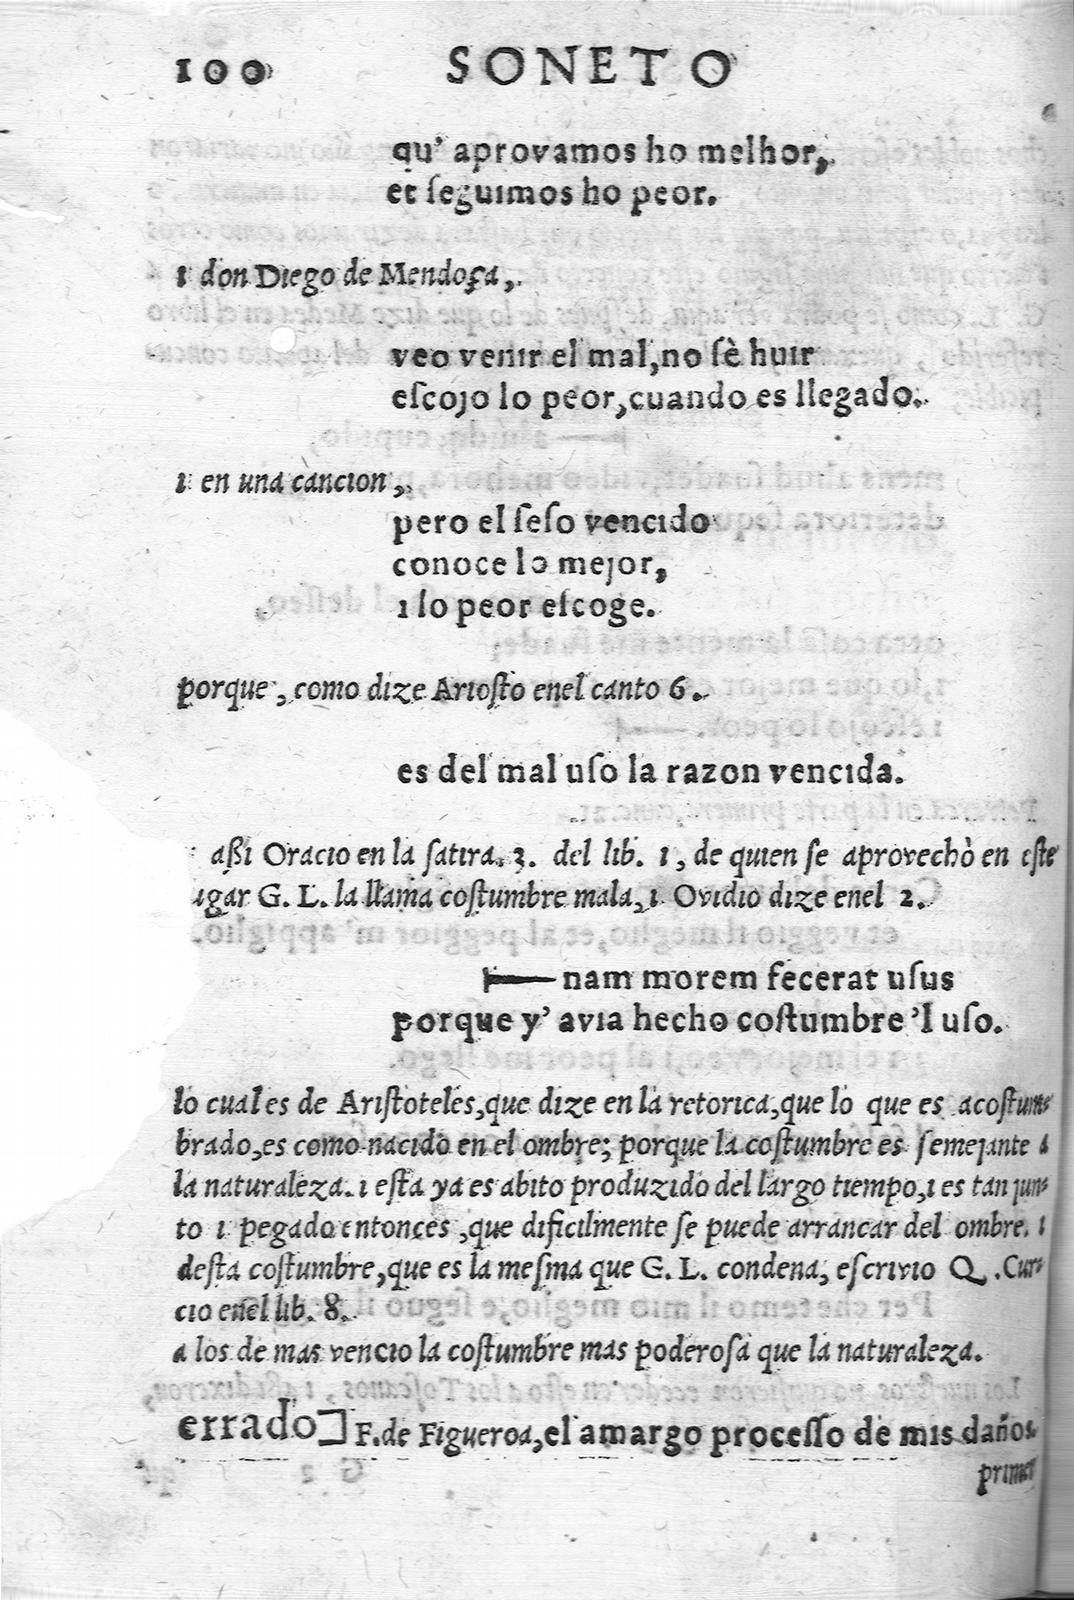 100 SONETO
qu' aprovamos ho melhor,
et ſeguimos ho peor.
ı don Diego de Mendoça,
veo venır el mal,no ſè huır
eſcoȷo lo peor,cuando es llegado.
ı en una cancıon,
pero el ſeſo vencıdo
conoce lo meȷor,
ı lo peor eſcoge.
porque, como dıze Arıoſto enel canto 6.
es del mal uſo la razon vencıda.
aßı Oracıo en la ſatıra. 3. del lıb. 1, de quıen ſe aprovechò en eſte
ugar G. L. la llama coſtumbre mala, ı Ovıdıo dıze enel 2.
nam morem fecerat uſus
porque y' avıa hecho coſtumbre 'l uſo.
lo cual es de Arıſtoteles,que dıze en la retorıca,que lo que es acoſtum-
brado,es como nacıdo en el ombre; porque la coſtumbre es ſemeȷante a
la naturaleza. ı eſta ya es abıto produzıdo del largo tıempo,ı es tan ȷun-
to ı pegado entonces,que dıfıcılmente ſe puede arrancar del ombre. ı
deſta coſtumbre,que es la meſma que G. L. condena, eſcrıvıo Q. Cur-
cıo enel lıb. 8.
a los de mas vencıo la coſtumbre mas poderoſa que la naturaleza.
errado] F. de Fıgueroa,el amargo proceſſo de mıs daños.
prımer